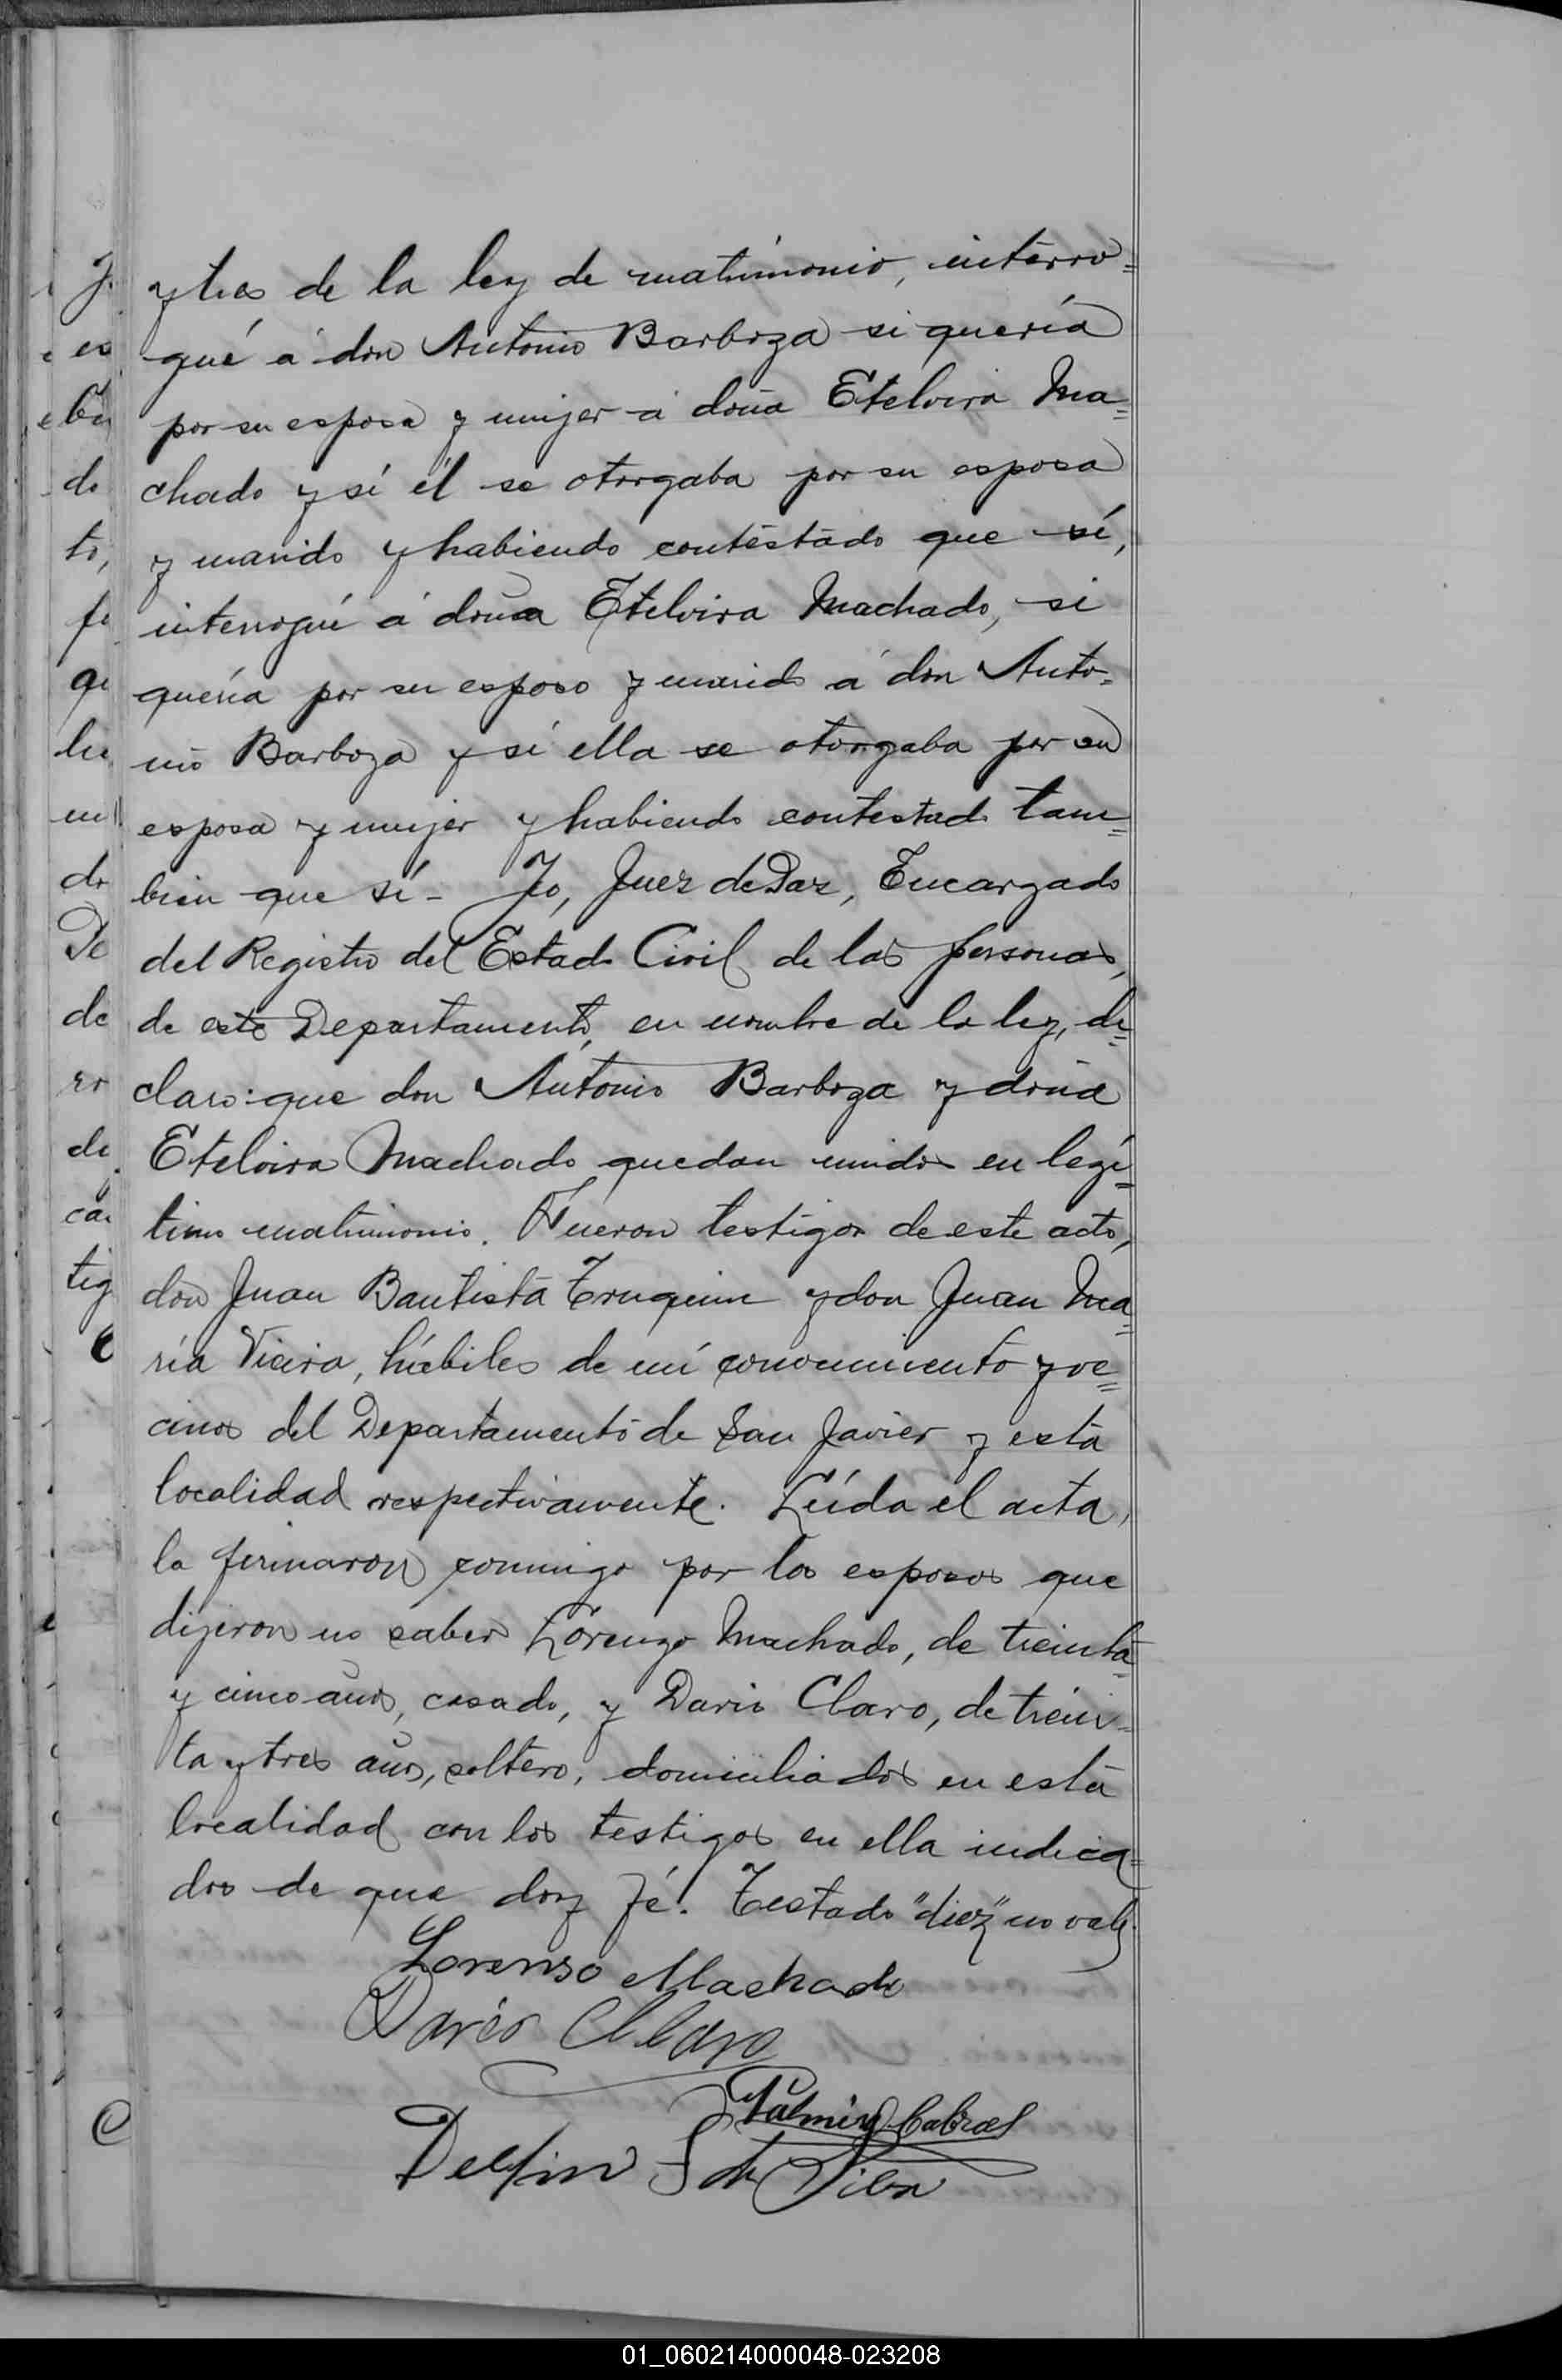 y tres de la ley de matrimonio, interro=
gué á don Antonio Barboza si quería
por su esposa y mujer á doña Etelvira Ma=
chado y sí él se otorgaba por su esposo
y marido y habiendo contestado que sí,
interrogué á doña Etelvira Machado, si
quería por su esposo y marido á don Anto=
nio Barboza y sí ella se otorgaba por su
esposa y mujer y habiendo contestado tam=
bien que sí - Yo, Juez de Paz, Encargado
del Registro del Estado Civil de las personas,
de este Departamento, en nombre de la ley, de=
claro: que don Antonio Barboza y doña
Etelvira Machado quedan unidos en legí=
timo matrimonio. Fueron testigos de este acto,
don Juan Bautista y don Juan Ma=
ría Vieira, hábiles de mí conocimiento y ve=
cinos del Departamento de San Javier y esta
localidad respectivamente. Leída el acta,
la firmaron conmigo por los esposos que
dijeron no saber Lorenzo Machado, de treinta
y cinco años, casado, y Dario Claro, de trein=
ta y tres años, soltero, domiciliados en esta
localidad con los testigos en ella indica=
dos de que doy fé. Testado "diez" no vale.
Lorenso Machado
Dario Claro
Cabral
Delfin Silva
J.
es
do
to,
fe
qu
do
De
de
ro
de
tig
01_060214000048-023208